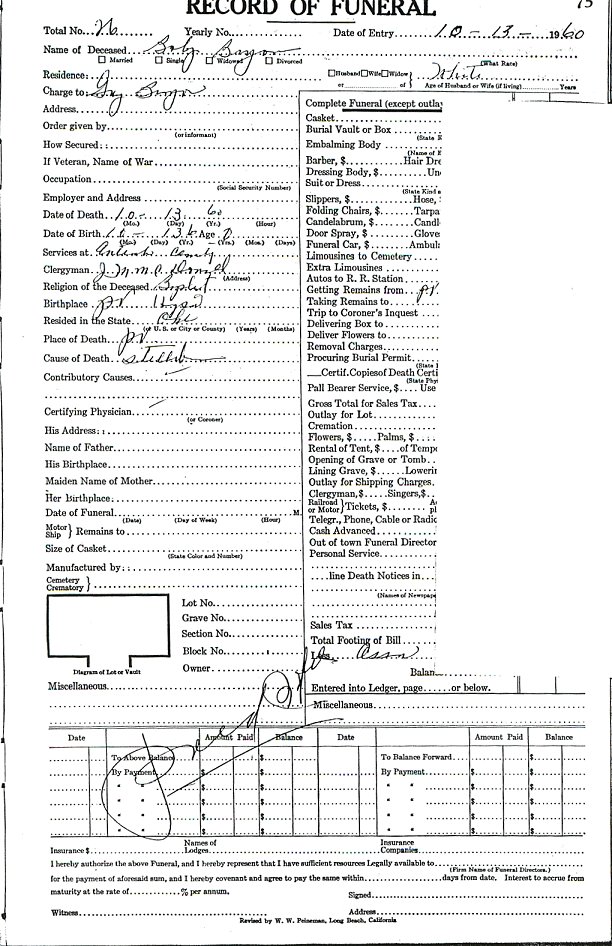 RECORD OF FUNERAL
Total No. 26 Yearly No. Date of Entry 10-13-1960
Name of Deceased Baby
Married Single Widowed Divorced (What Rate)
Residence: Husband Wife Widow White
or of Age of Husband or Wife (if living) Years
Charge to:
Address
Order given by
(or informant)
How Secured:
If Veteran, Name of War
Occupation
(Social Security Number)
Employer and Address
Date of Death 10-13-60
(Mo.) (Day) (Yr.) (Hour)
Date of Birth 10-13- Age
(Mo.) (Day) (Yr.) (Yrs.) (Mon.) (Days)
Services at County
Clergyman
(Address)
Religion of the Deceased Baptist
Birthplace
Resided in the State
(or U. S. or City or County) (Years) (Months)
Place of Death
Cause of Death
Contributory Causes
Certifying Physician
(or Coroner)
His Address:
Name of Father
His Birthplace
Maiden Name of Mother
Her Birthplace
Date of Funeral M.
(Date) (Day of Week) (Hour)
Motor Ship } Remains to
Size of Casket
(State Color and Number)
Manufactured by:
Cemetery Crematory }
Lot No.
Grave No.
Section No.
Block No.
Owner
Diagram of Lot or Vault
Miscellaneous
Complete Funeral (except outla
Casket
Burial Vault or Box
(State K
Embalming Body
(Name of E
Barber, $ Hair Dre
Dressing Body, $ Un
Suit or Dress
(State Kind a
Slippers, $ Hose,
Folding Chairs, $ Tarpa
Candelabrum, $ Candl
Door Spray, $ Glove
Funeral Car, $ Ambul
Limousines to Cemetery
Extra Limousines
Autos to R. R. Station
Getting Remains from
Taking Remains to
Trip to Coroner's Inquest
Delivering Box to
Deliver Flowers to
Removal Charges
Procuring Burial Permit
(State
Certif. Copies of Death Certi
(State Phy
Pall Bearer Service, $ Use
Gross Total for Sales Tax
Outlay for Lot
Cremation
Flowers, $ Palms, $
Rental of Tent, $ of Temp
Opening of Grave or Tomb
Lining Grave, $ Lowerin
Outlay for Shipping Charges
Clergyman, $ Singers, $
Railroad or Motor } Tickets, $
Telegr., Phone, Cable or Radio
Cash Advanced
Out of town Funeral Director
Personal Service
line Death Notices in
(Names of Newspape
Sales Tax
Total Footing of Bill
Less
Balan
Entered into Ledger, page or below.
Miscellaneous
Date Amount Paid Balance Date Amount Paid Balance
To Above Balance $ To Balance Forward $
By Payment $ $ By Payment $ $
" " $ $ " " $ $
" " $ $ " " $ $
" " $ $ " " $ $
" " $ $ " " $ $
Insurance $ Names of Lodges Insurance Companies
I hereby authorize the above Funeral, and I hereby represent that I have sufficient resources Legally available to
(Firm Name of Funeral Directors.)
for the payment of aforesaid sum, and I hereby covenant and agree to pay the same within days from date. Interest to accrue from
maturity at the rate of % per annum. Signed
Witness Address
Revised by W. W. Peineman, Long Beach, California